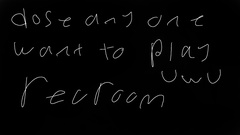 dose any one
want to play
recroom UwU